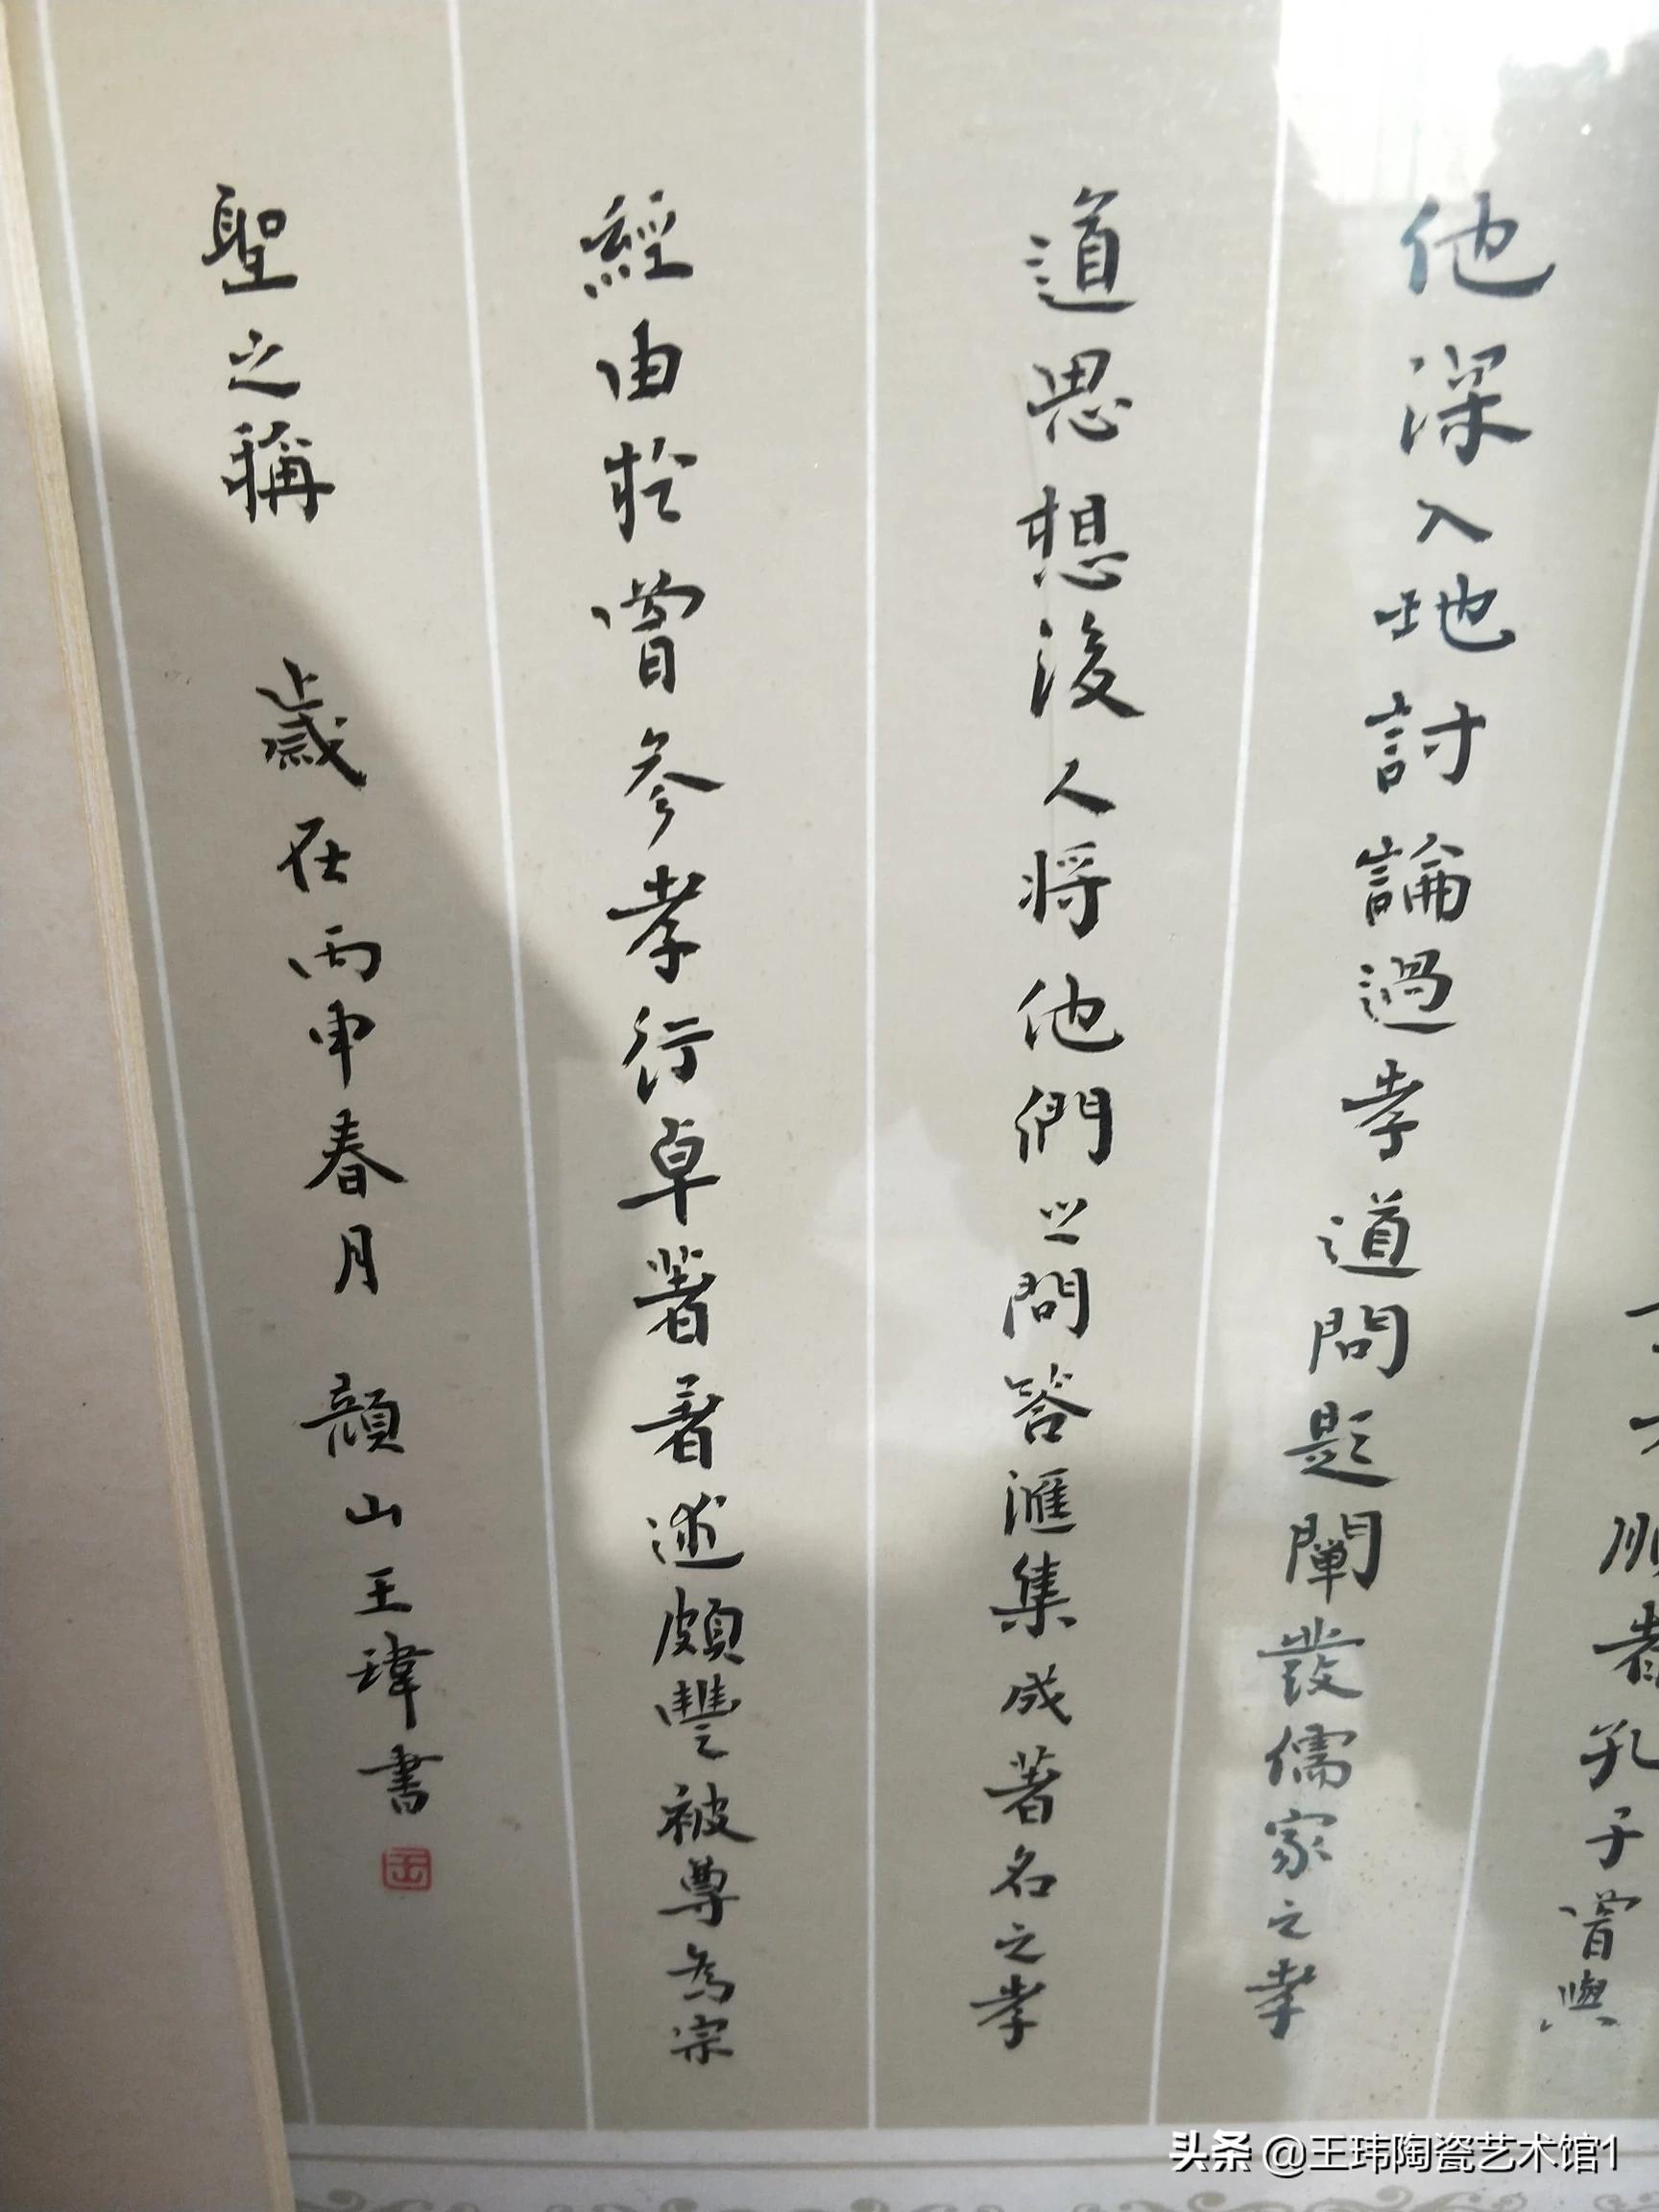 孔子曾與
他深入地討論過孝道問題闡發儒家之孝
道思想後人將他們之問答滙集成著名之孝
經由於曾參孝行卓著著述頗豐被尊為宗
聖之稱 歲在丙申春月 顏山王瑋書
头条 @王玮陶瓷艺术馆1